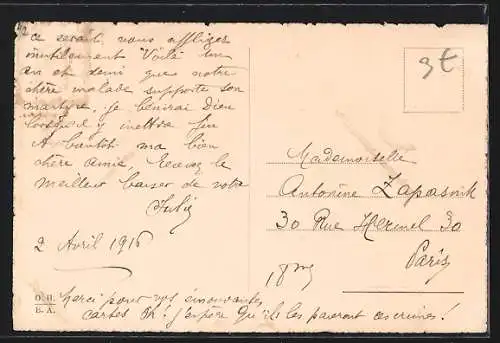 ce serait vous affliger
inutilement Voilà un
an et demi que notre
chère malade supporte son
martyre, je bénirai Dieu
lorsqu'il y mettra fin
A bientôt ma bien
chère amie. Recevez le
meilleur baiser de votre
2 Avril 1916
O. H.
B. A.
Merci pour vos émouvantes
cartes Oh! j'espère qu'ils les paieront ces crimes!
3€
Mademoiselle
Antonine Zapasnik
30 Rue Hermel 30
Paris
18me